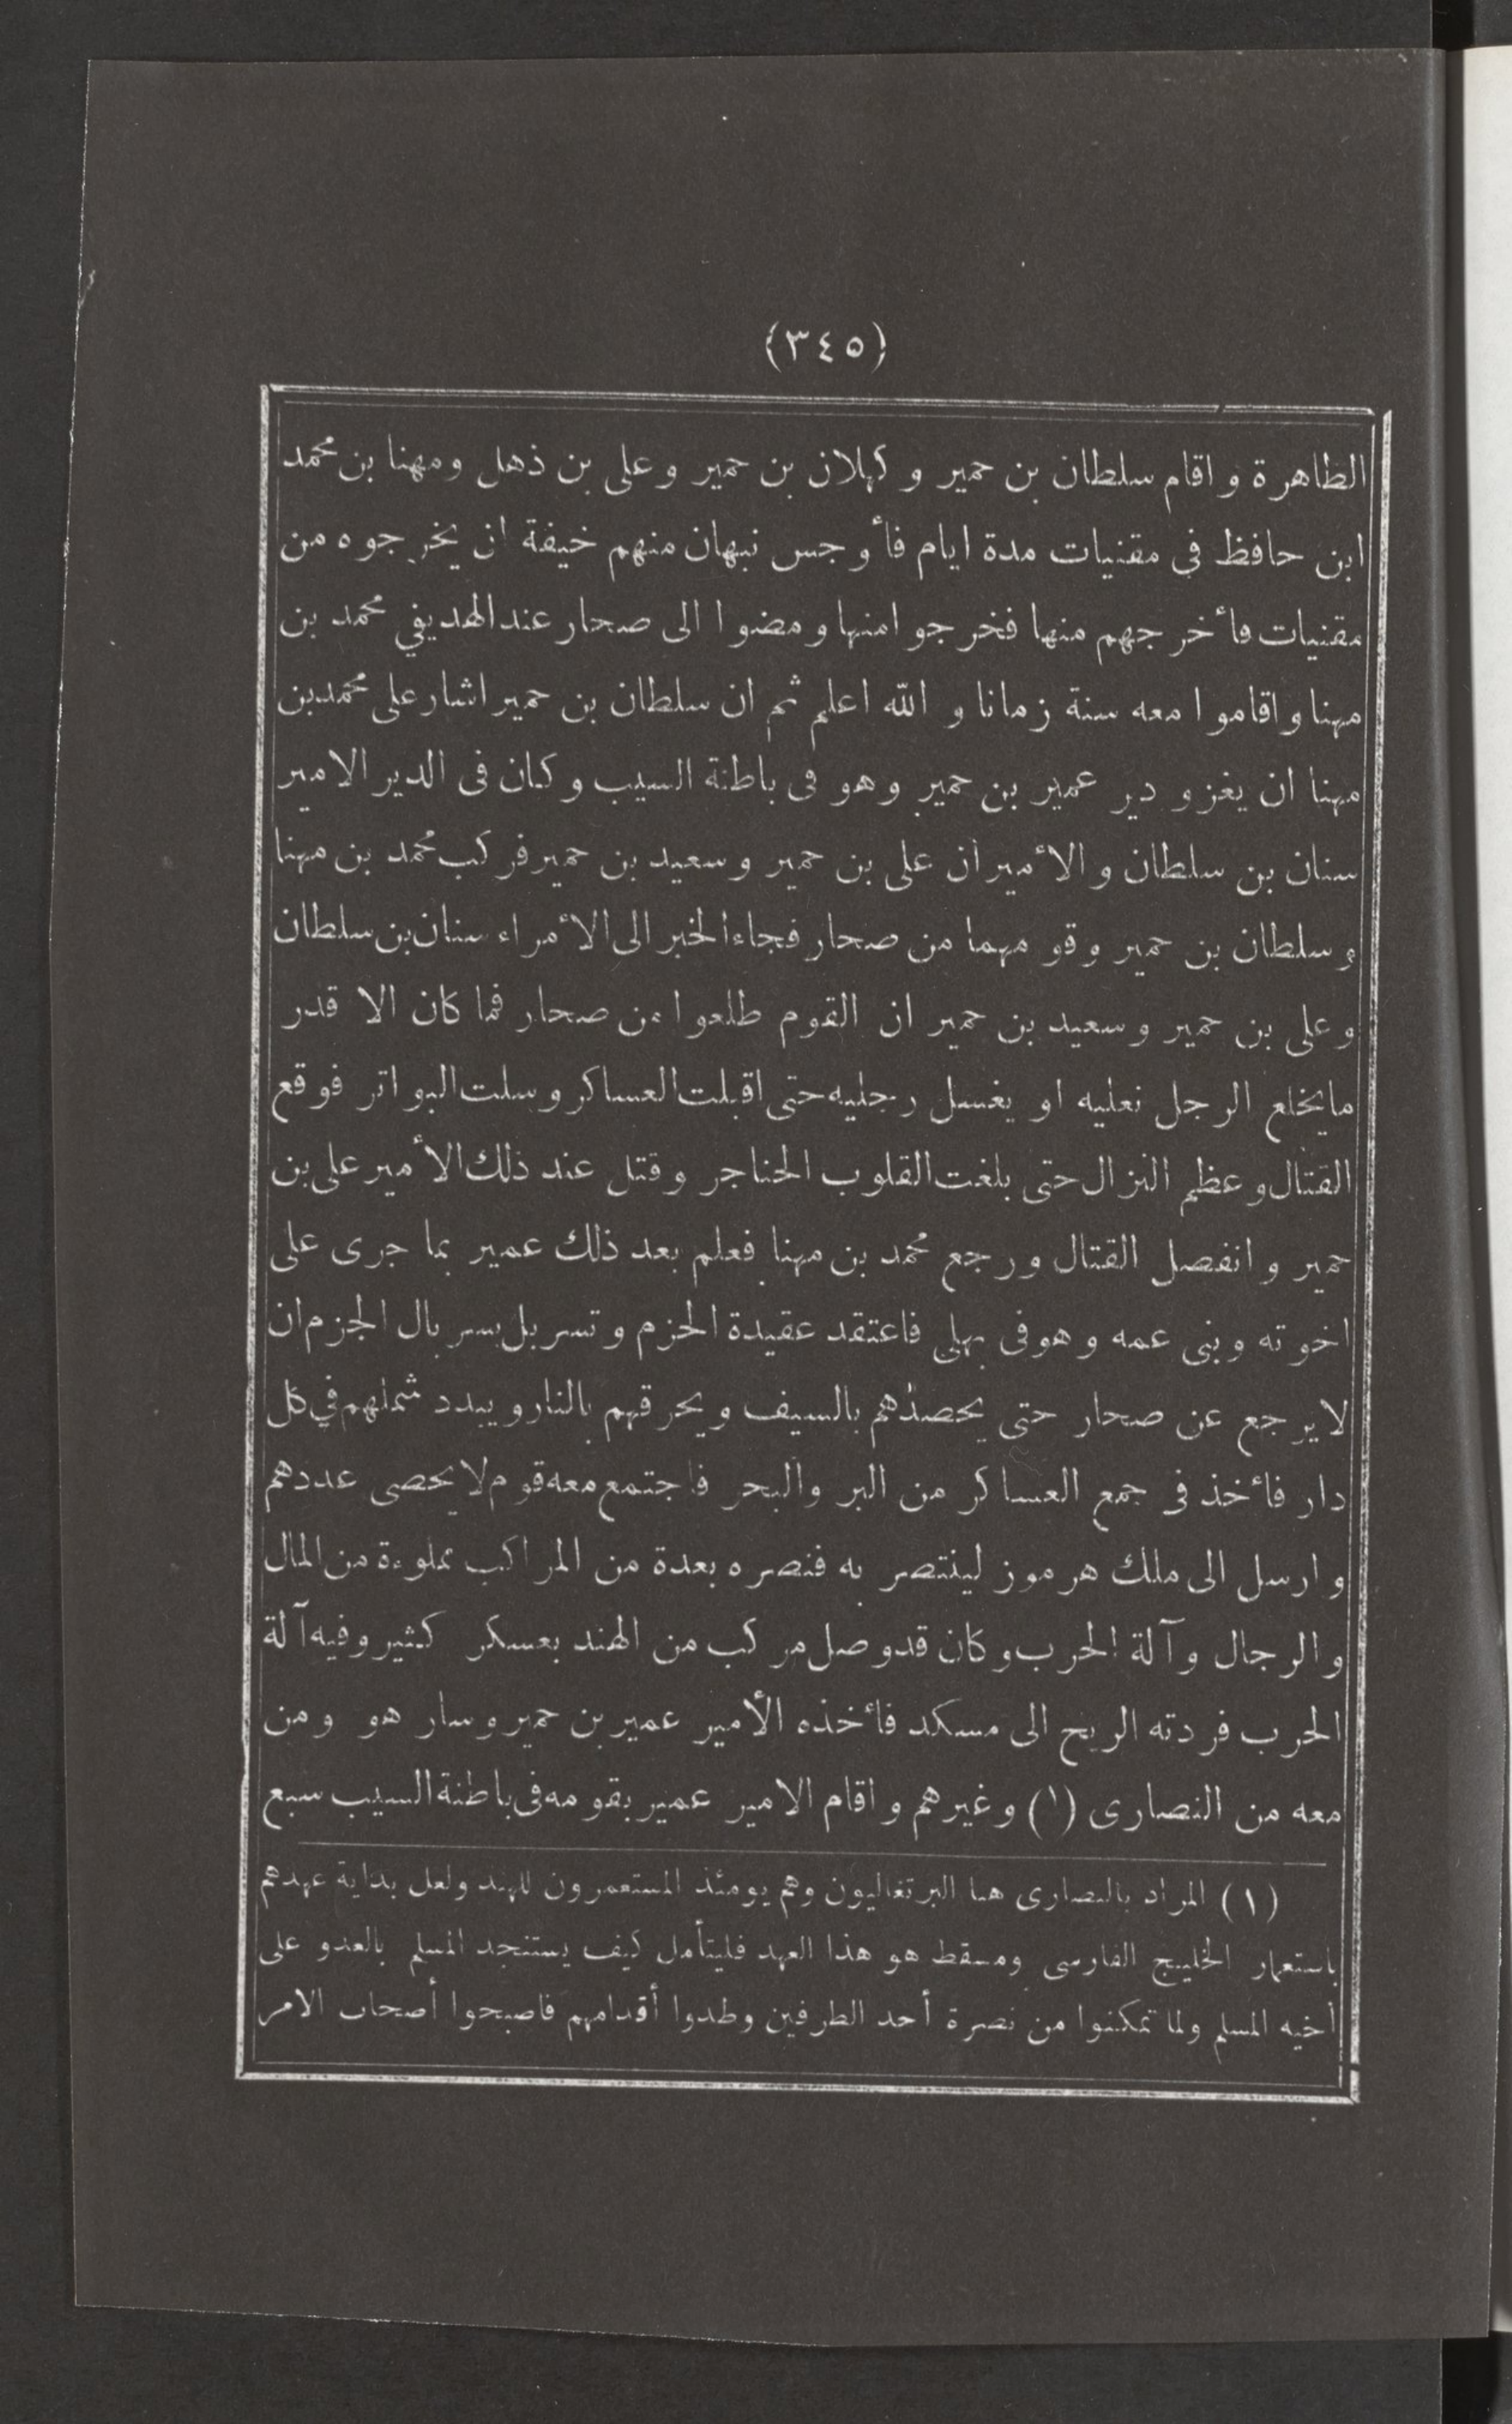 (٣٤٥)
الطاهرة واقام سلطان بن حمير وكهلان بن حمير وعلى بن ذهل ومهنا بن محمد
ابن حافظ فى مقنيات مدة ايام فأوجس نبهان منهم خيفة ان يخرجوه من
مقنيات فأخرجهم منها فخرجوا منها ومضوا الى صحار عند الهديفي محمد بن
مهنا واقاموا معه سنة زمانا والله اعلم ثم ان سلطان بن حمير اشار على محمد بن
مهنا ان يغزو دير عمير بن حمير وهو فى باطنة السيب وكان فى الدير الامير
سنان بن سلطان والأميران على بن حمير وسعيد بن حمير فركب محمد بن مهنا
وسلطان بن حمير وقومهما من صحار فجاء الخبر الى الأمراء سنان بن سلطان
وعلى بن حمير وسعيد بن حمير ان القوم طلعوا من صحار فما كان الا قدر
مايخلع الرجل نعليه او يغسل رجليه حتى اقبلت العساكر وسلت البواتر فوقع
القتال وعظم النزال حتى بلغت القلوب الحناجر وقتل عند ذلك الأمير على بن
حمير وانفصل القتال ورجع محمد بن مهنا فعلم بعد ذلك عمير بما جرى على
اخوته وبنى عمه وهو فى بهلى فاعتقد عقيدة الحزم وتسربل بسربال الجزم ان
لايرجع عن صحار حتى يحصدهم بالسيف ويحرقهم بالنار ويبدد شملهم في كل
دار فأخذ فى جمع العساكر من البر والبحر فاجتمع معه قوم لا يحصى عددهم
وارسل الى ملك هرموز لينتصر به فنصره بعدة من المراكب مملوءة من المال
والرجال وآلة الحرب وكان قد وصل مركب من الهند بعسكر كثير وفيه آلة
الحرب فردته الريح الى مسكد فأخذه الأمير عمير بن حمير وسار هو ومن
معه من النصارى (١) وغيرهم واقام الامير عمير بقومه فى باطنة السيب سبع
(١) المراد بالنصارى هنا البرتغاليون وهم يومئذ المستعمرون للهند ولعل بداية عهدهم
باستعمار الخليج الفارسى ومسقط هو هذا العهد فليتأمل كيف يستنجد المسلم بالعدو على
أخيه المسلم ولما تمكنوا من نصرة أحد الطرفين وطدوا أقدامهم فاصبحوا أصحاب الامر